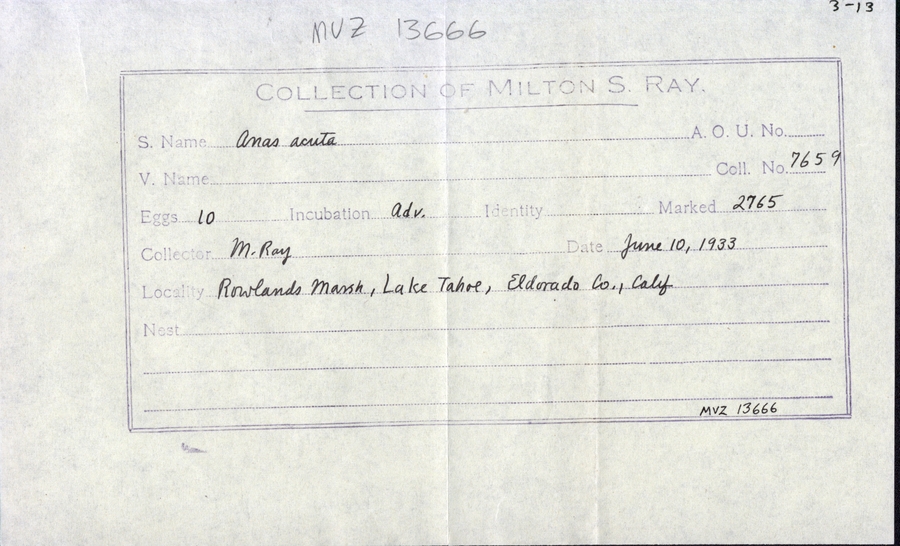 3-13
MVZ 13666
COLLECTION OF MILTON S. RAY.
S. Name Anas acuta A. O. U. No.
V. Name Coll. No. 7659
Eggs 10 Incubation Adv. Identity Marked 2765
Collector M. Ray Date June 10, 1933
Locality Rowlands Marsh, Lake Tahoe, Eldorado Co., Calif
Nest
MVZ 13666